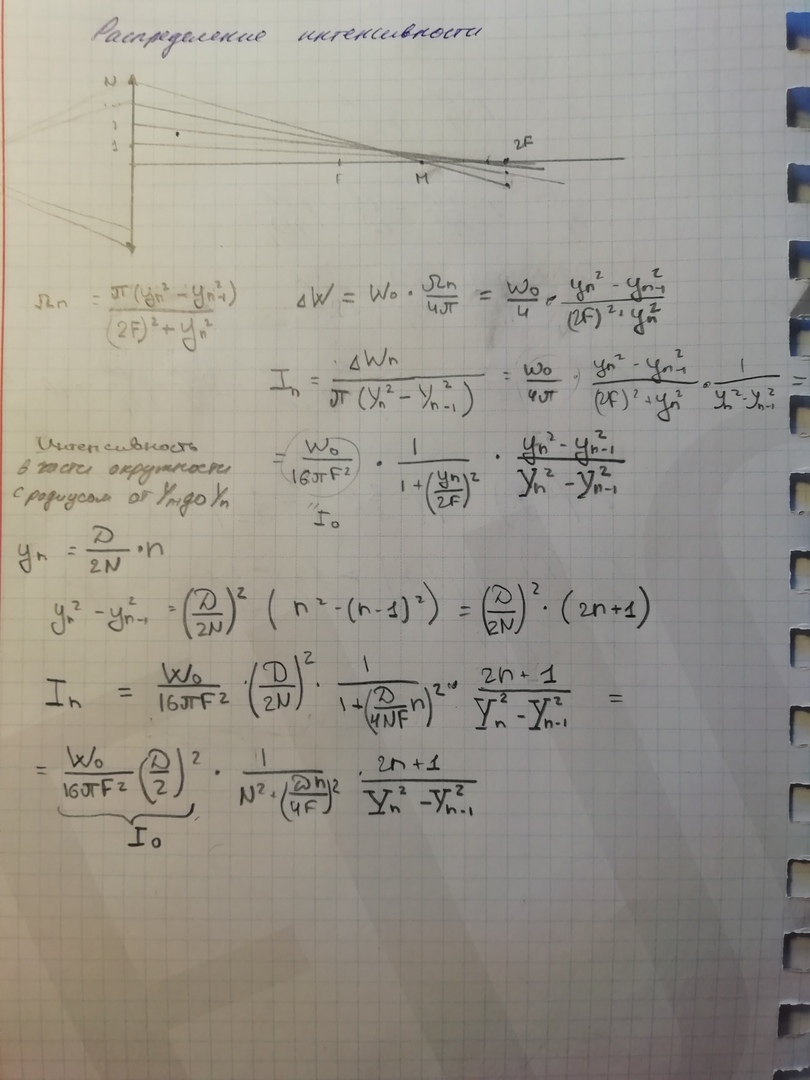 Распределение интенсивности
N
...
2
1
F M 2F
Ωn = π(yn² - yn-1²) / ((2F)² + yn²) ΔW = W₀ · Ωn/4π = W₀/4 · (yn² - yn-1²) / ((2F)² + yn²)
In = ΔWn / (π(Yn² - Yn-1²)) = W₀/4π · (yn² - yn-1²) / ((2F)² + yn²) · 1/(Yn² - Yn-1²) =
Интенсивность
в части окружности
с радиусом от Yn-1 до Yn
= W₀/16πF² · 1/(1+(yn/2F)²) · (yn² - yn-1²)/(Yn² - Yn-1²)
I₀
yn = D/2N · n
yn² - yn-1² = (D/2N)² (n² - (n-1)²) = (D/2N)² · (2n+1)
In = W₀/16πF² · (D/2N)² · 1/(1+(D/4NF n)²) · (2n+1)/(Yn² - Yn-1²) =
= W₀/16πF² (D/2)² · 1/(N² + (Dn/4F)²) · (2n+1)/(Yn² - Yn-1²)
I₀